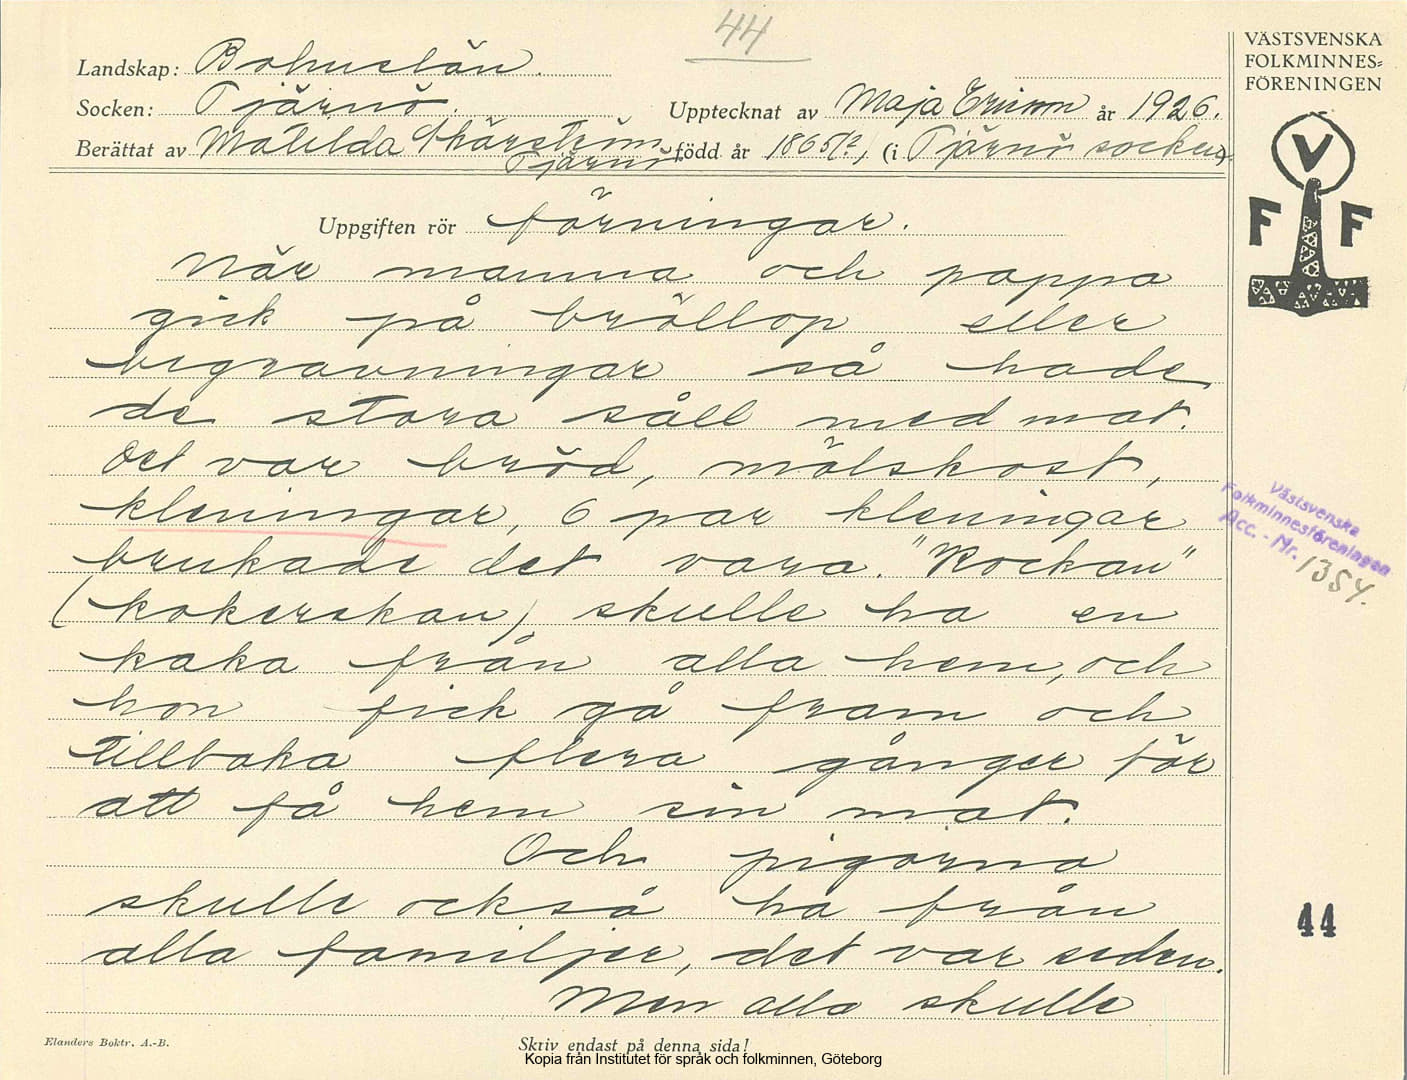 44
VÄSTSVENSKA
FOLKMINNES=
FÖRENINGEN
Landskap: Bohuslän.
Socken: Tjärnö.
Upptecknat av Maja Ericson år 1926.
Berättat av Matilda Skärström född år 1865(?) (i Tjärnö socken)
Tjärnö
V
F F
Uppgiften rör förningar.
När mamma och pappa
gick på bröllop eller
begravningar så hade
de stora såll med mat.
Det var bröd, mölskost,
kleningar, 6 par kleningar
brukade det vara. "Kockan"
(kokerskan) skulle ha en
kaka från alla hem, och
hon fick gå fram och
tillbaka flera gånger för
att få hem sin mat.
Och pigorna
skulle också ha från
alla familjer, det var seden.
Men alla skulle
Västsvenska
Folkminnesföreningen
Acc. - Nr. 1354.
44
Elanders Boktr. A.-B.
Skriv endast på denna sida!
Kopia från Institutet för språk och folkminnen, Göteborg